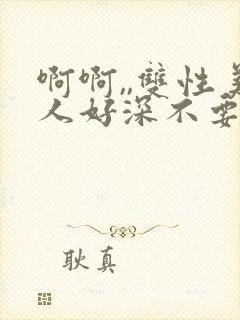 啊啊,,雙性美
人好深不要
耿真